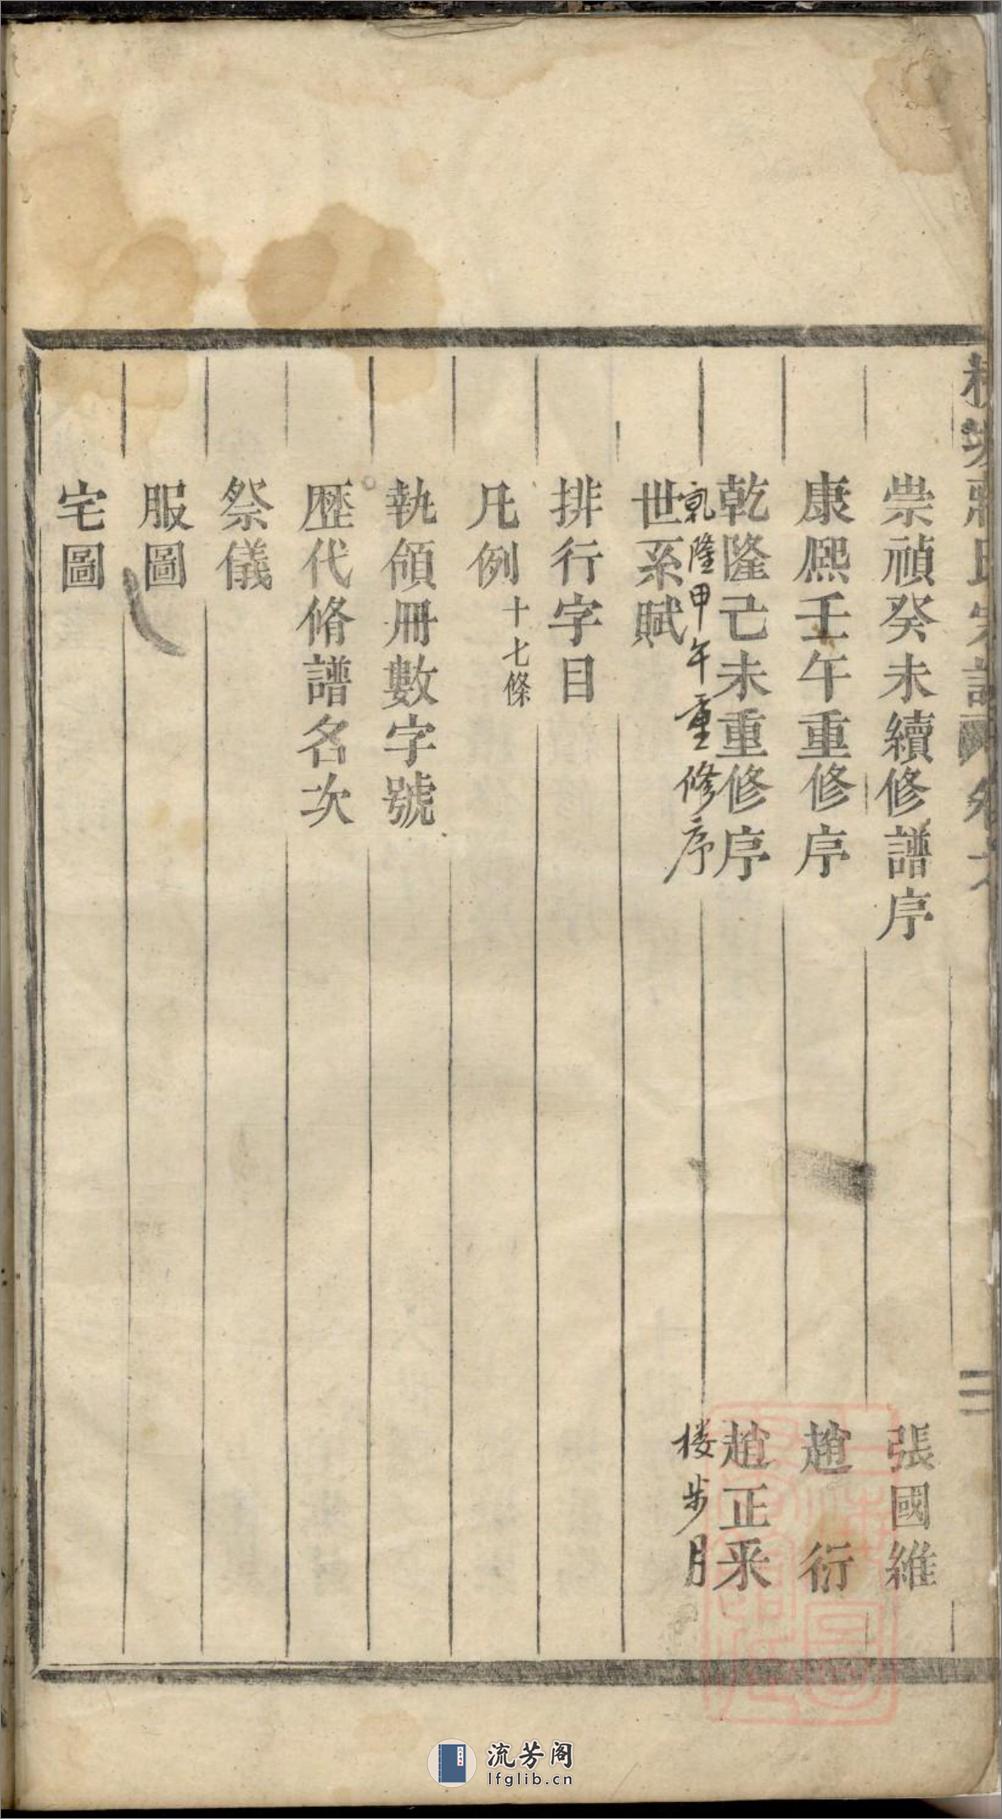 崇禎癸未續修譜序 張國維
康熙壬午重修序 趙 衍
乾隆己未重修序 趙正采
乾隆甲午重修序 楼步月
世系賦
排行字目
凡例 十七條
執領冊數字號
歷代脩譜名次
祭儀
服圖
宅圖
二
流芳阁
lfglib.cn